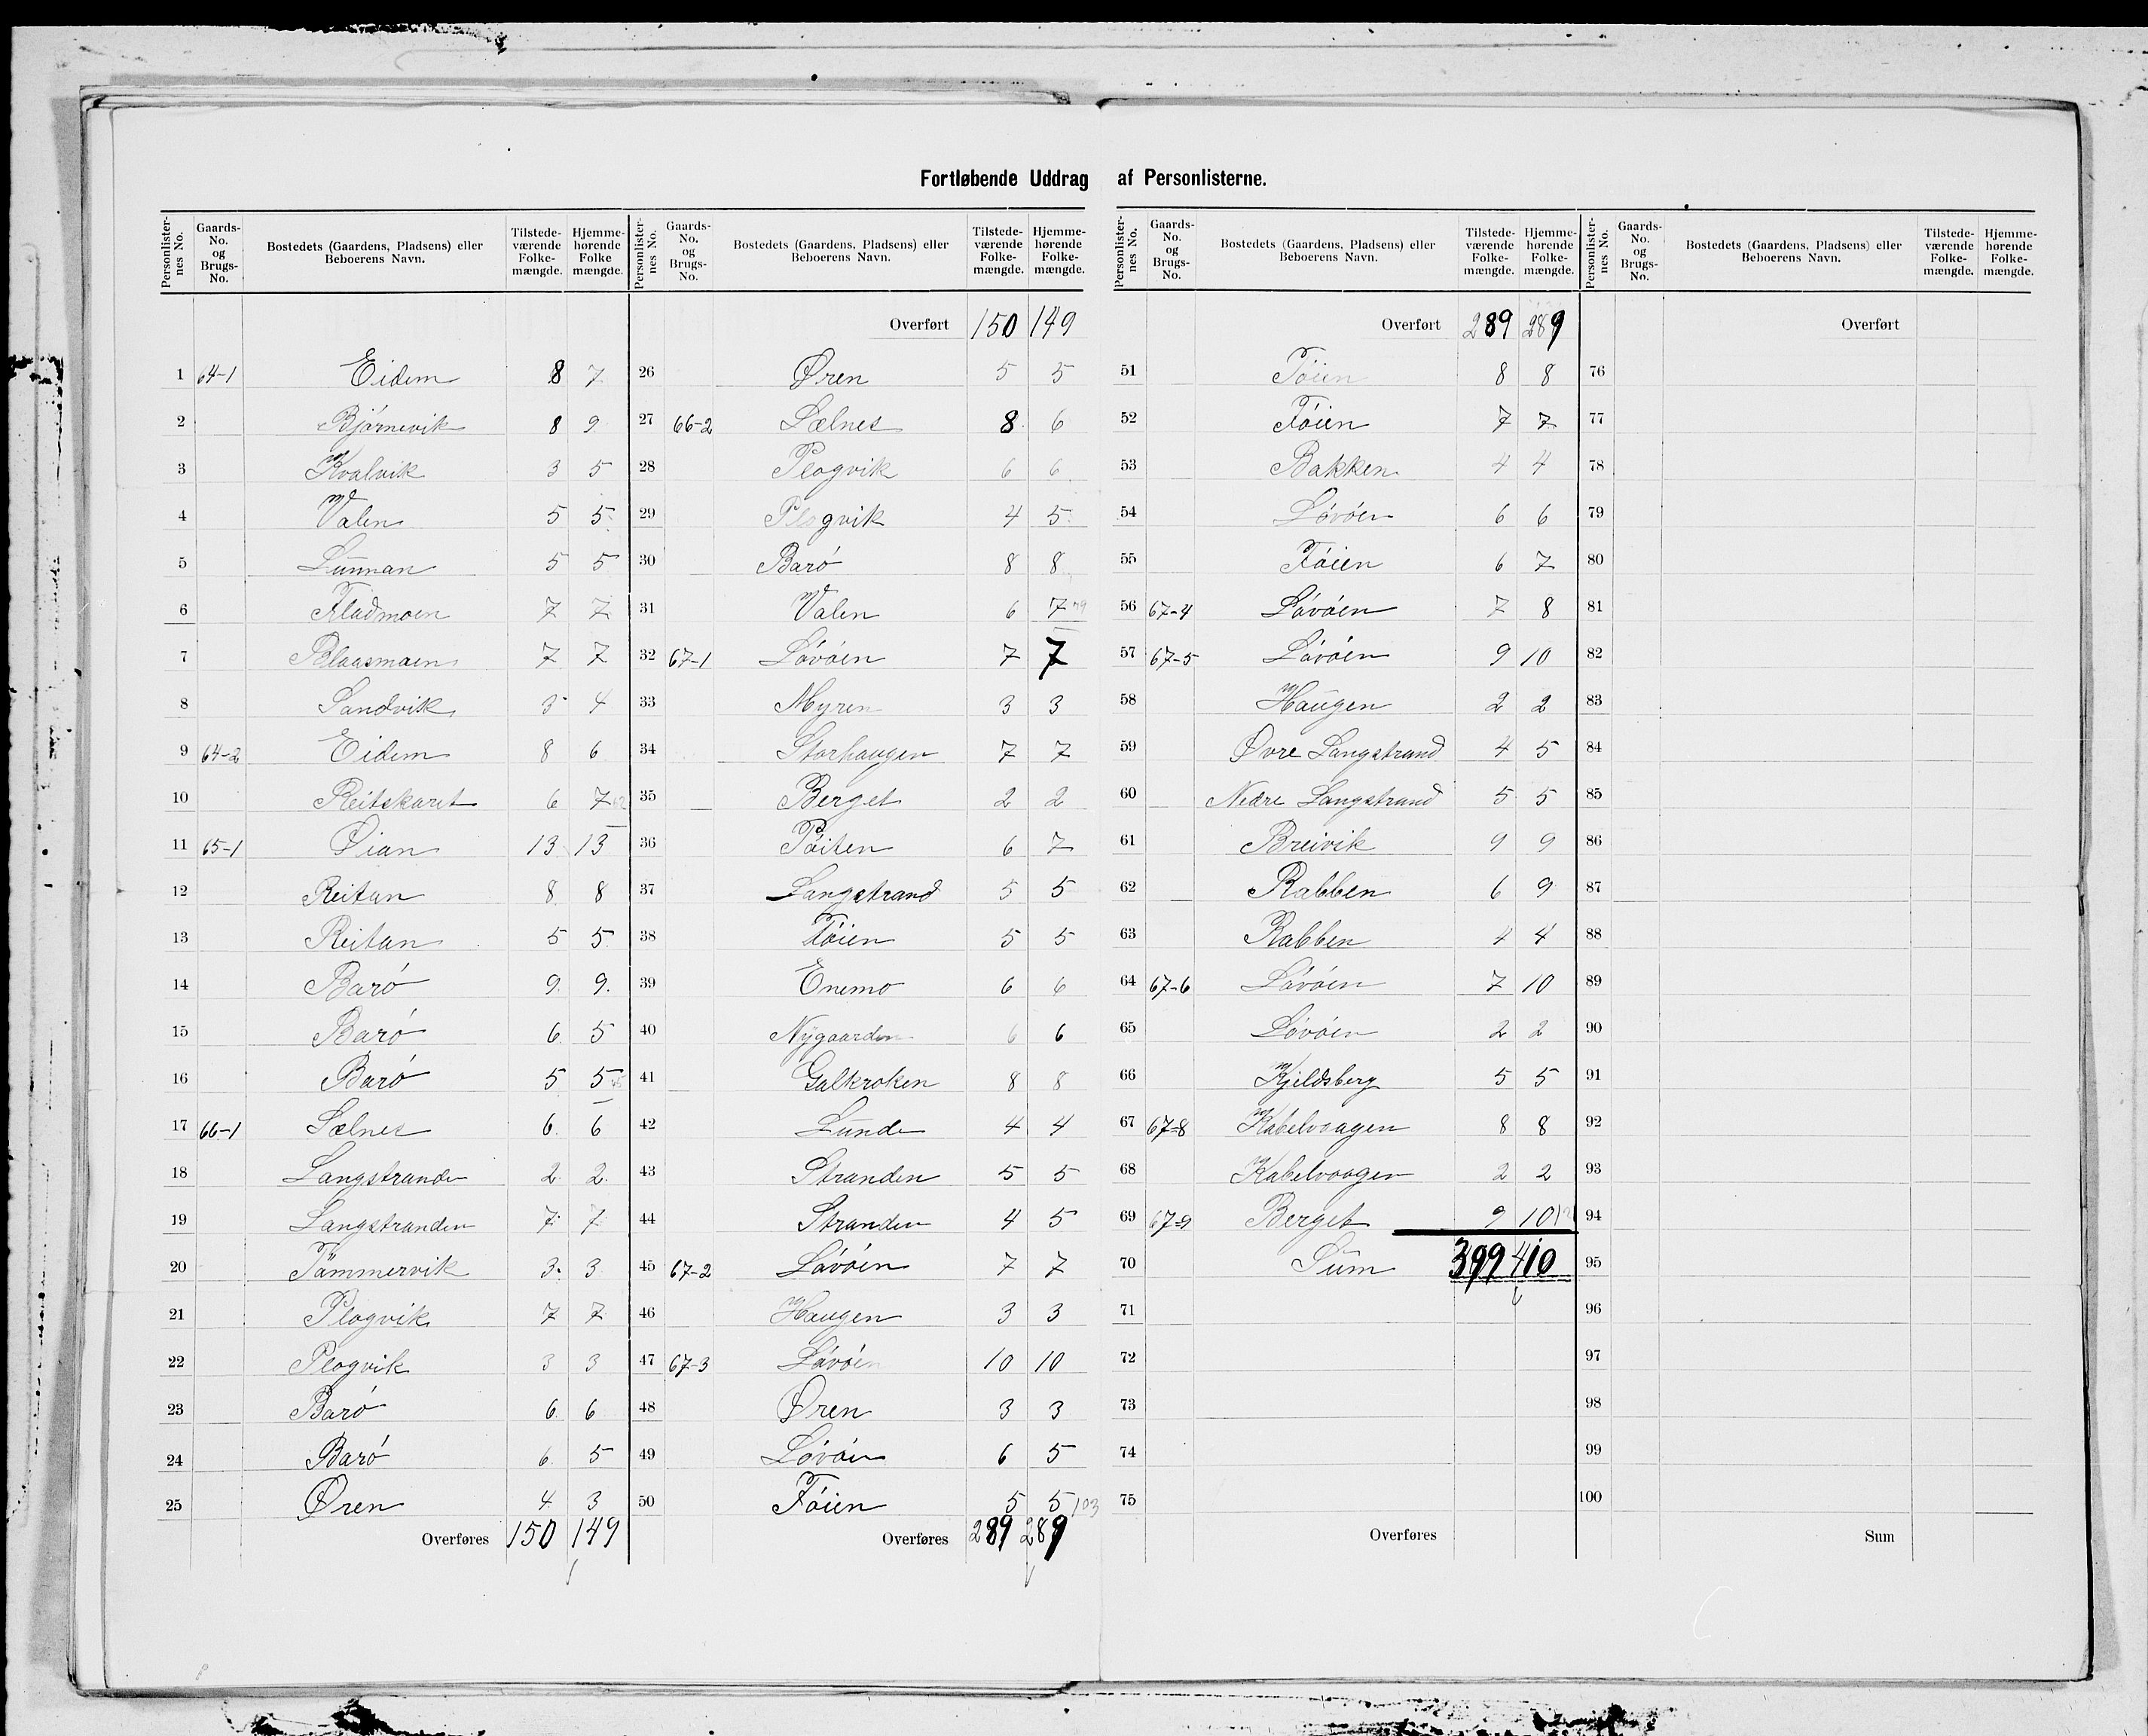 Fortløbende Uddrag af Personlisterne.
Personlister-nes No. Gaards-No. og Brugs-No. Bostedets (Gaardens, Pladsens) eller Beboerens Navn. Tilstede-værende Folke-mængde. Hjemme-hørende Folke mængde.
1 64-1 Eidem 8 7
2 Bjørnevik 8 9
3 Kvalvik 3 5
4 Valen 5 5
5 Lunman 5 5
6 Fladmoen 7 7
7 Blaasmoen 7 7
8 Sandvik 3 4
9 64-2 Eidem 8 6
10 Reitskaret 6 7 62
11 65-1 Øian 13 13
12 Reitan 8 8
13 Reitan 5 5
14 Barø 9 9
15 Barø 6 5
16 Barø 5 5 45
17 66-1 Sælnes 6 6
18 Langstranden 2 2
19 Langstranden 7 7
20 Tømmervik 3 3
21 Plogvik 7 7
22 Plogvik 3 3
23 Barø 6 6
24 Barø 6 5
25 Øren 4 3
Overføres 150 149
Personlister-nes No. Gaards-No. og Brugs-No. Bostedets (Gaardens, Pladsens) eller Beboerens Navn. Tilstede-værende Folke-mængde. Hjemme-hørende Folke-mængde.
Overført 150 149
26 Øren 5 5
27 66-2 Sælnes 8 6
28 Plogvik 6 6
29 Plogvik 4 5
30 Barø 8 8
31 Valen 6 7 79
32 67-1 Løvøen 7 7
33 Myren 3 3
34 Storhaugen 7 7
35 Berget 2 2
36 Pøiten 6 7
37 Langstrand 5 5
38 Føien 5 5
39 Enemo 6 6
40 Nygaarden 6 6
41 Galkroken 8 8
42 Lunde 4 4
43 Stranden 5 5
44 Stranden 4 5
45 67-2 Løvøen 7 7
46 Haugen 3 3
47 67-3 Løvøen 10 10
48 Øren 3 3
49 Løvøen 6 5
50 Føien 5 5 103
Overføres 289 289
Personlister-nes No. Gaards-No. og Brugs-No. Bostedets (Gaardens, Pladsens) eller Beboerens Navn. Tilstede-værende Folke-mængde. Hjemme-hørende Folke-mængde.
Overført 289 289
51 Føien 8 8
52 Føien 7 7
53 Bakken 4 4
54 Løvøen 6 6
55 Føien 6 7
56 67-4 Løvøen 7 8
57 67-5 Løvøen 9 10
58 Haugen 2 2
59 Øvre Langstrand 4 5
60 Nedre Langstrand 5 5
61 Breivik 9 9
62 Rabben 6 9
63 Rabben 4 4
64 67-6 Løvøen 7 10
65 Løvøen 2 2
66 Kjeldsberg 5 5
67 67-8 Kabelvaagen 8 8
68 Kabelvaagen 2 2
69 67-9 Berget 9 10
70 Sum 399 410
71
72
73
74
75
Overføres
Personlister-nes No. Gaards-No. og Brugs-No. Bostedets (Gaardens, Pladsens) eller Beboerens Navn. Tilstede-værende Folke-mængde. Hjemme-hørende Folke-mængde.
Overført
76
77
78
79
80
81
82
83
84
85
86
87
88
89
90
91
92
93
94
95
96
97
98
99
100
Sum